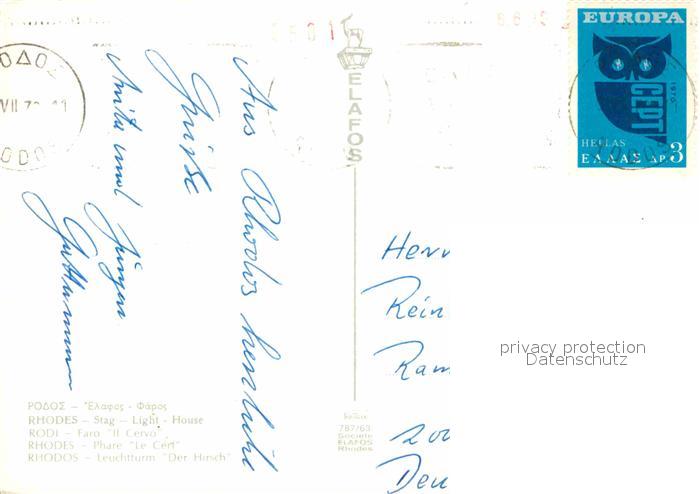 Aus Rhodos herzliche
Grüße
Anita und Jürgen
ΡΟΔΟΣ – Ἔλαφος - Φάρος
RHODES – Stag – Light - House
RODI – Faro "Il Cervo"
RHODES – Phare "Le Cerf"
RHODOS – Leuchtturm "Der Hirsch"
ELAFOS
787/63
Société
ELAFOS
Rhodes
EUROPA
CEPT
1970
HELLAS
ΕΛΛΑΣ ΔΡ 3
Herr
Rein
Ram
200
Deu
privacy protection
Datenschutz